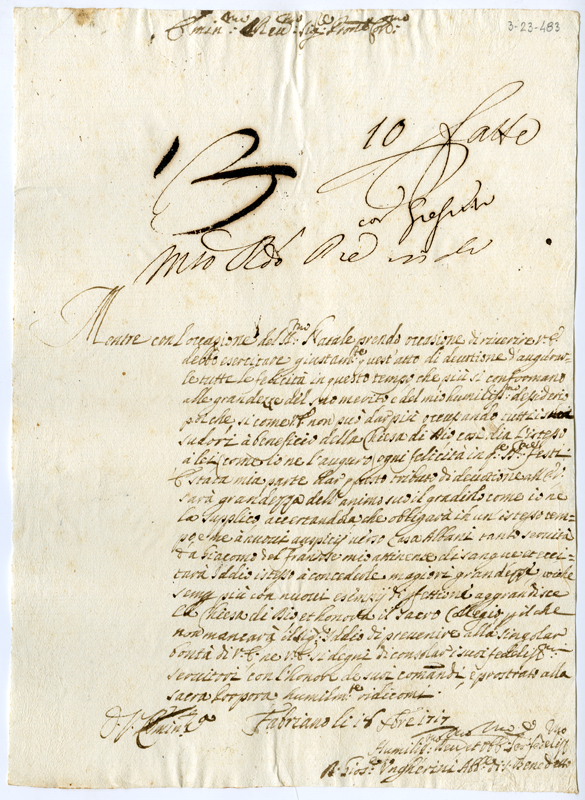 3-23-483
Emin.mo Rev.mo Sig.e Pron.e Col.mo
10 fatte
con
Mio
Mentre con l'occasione del SS.mo Natale prendo occasione di riverire V.E.
debbo esercitare giustam.te quest'atto di devotione d'augurar-
le tutte le felicità in questo tempo che più si conformano
alle grandezze del suo merito e del mio humiliss.mo desiderio
poiche si come V.E. non può dar più occupando tutti i suoi
sudori à beneficio della Chiesa di Dio così dia l'istesso
à lei (come io ne l'auguro) ogni felicità in q.te SS.me Feste
E stata mia parte dar questo tributo di devotione all'E.V.
sarà grandezza dell'animo suo il gradirlo come io ne
la supplico accertandola che obligarà in un istesso tem-
po che à nuovi auspicij verso Casa Albani tanto servita
da Giacomo del frate mio attinene di sangue et ecci-
tarà Iddio istesso à concederle magiori grandezze poiche
sempre più con nuovi esempij di aggrandisce
la Chiesa di Dio et honora il Sacro Collegio, il che
non mancarà il Sig.r Iddio di prevenire alla singolar
bontà di V.E. ne V.E. si degni di consolar i suoi fedeliss.mi
servitori con l'honore de suoi comandi, e prostrato alla
sacra Porpora humilm.te ridicomi
D. V. Eminza
Fabriano li 18 Xbre 1717
Humiliss.mo Dev.mo et Obb.mo Ser. fedeliss.mo
D. Gios. Ungherini Ab.e di S. Benedetto